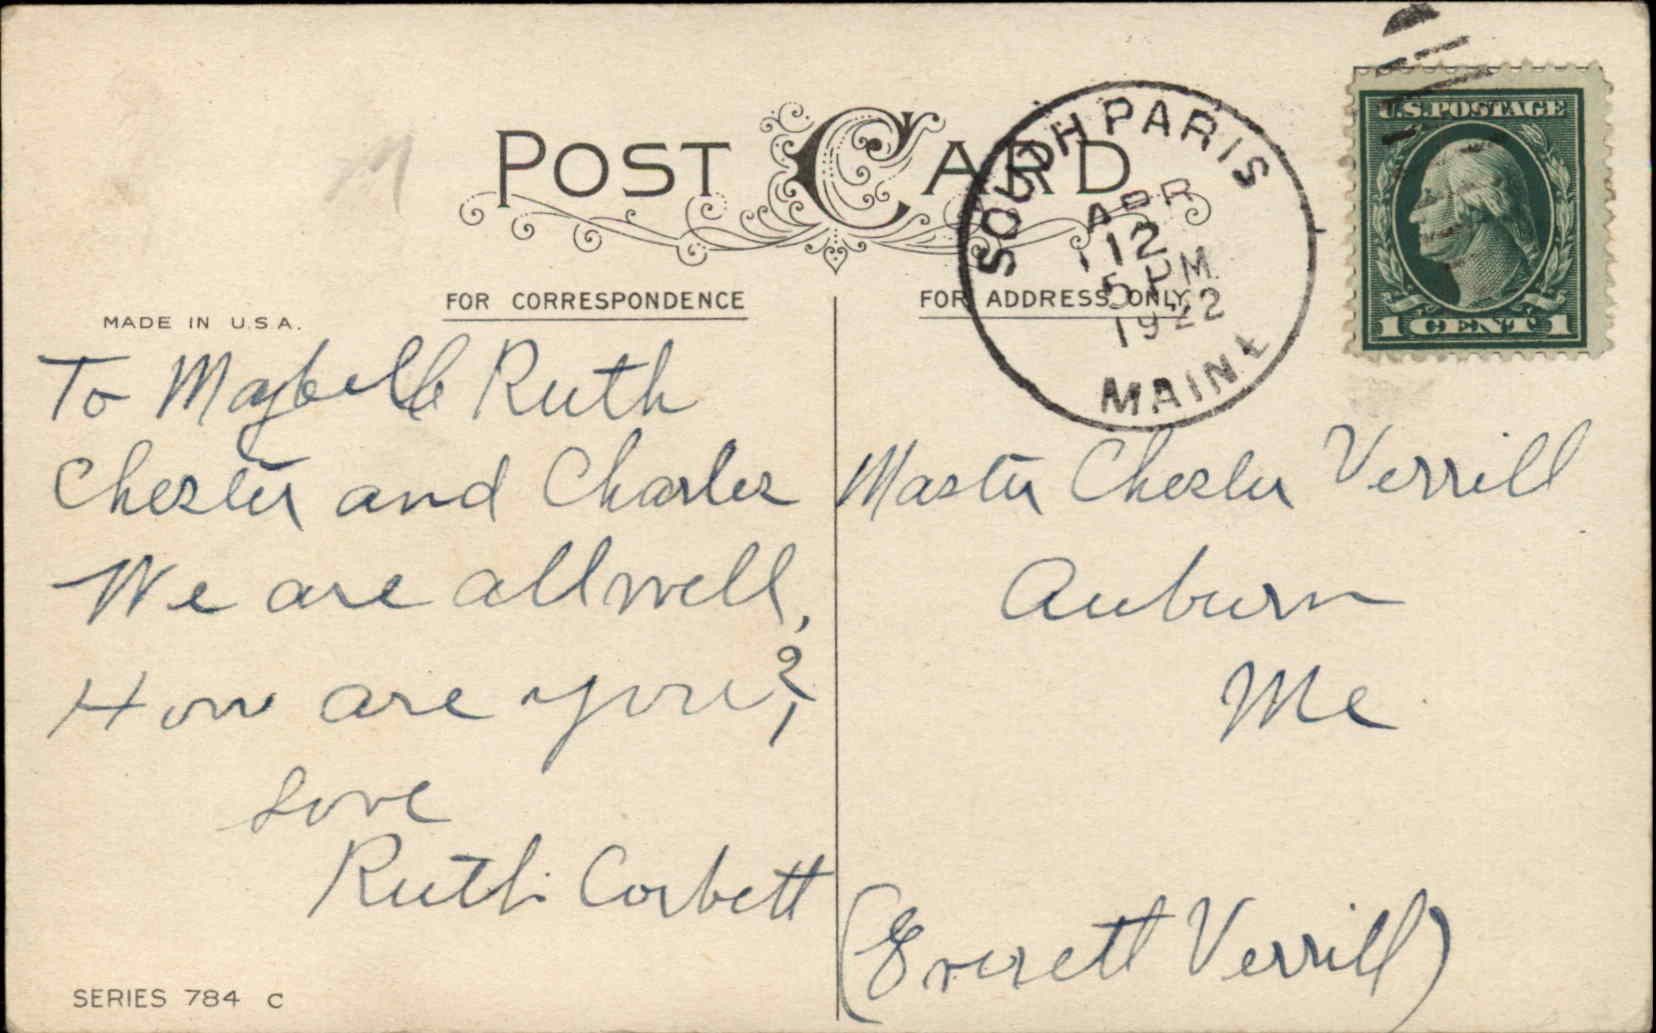 POST CARD
SOUTH PARIS
APR
12
5 PM
1922
MAINE
U.S. POSTAGE
1 CENT 1
MADE IN U.S.A.
FOR CORRESPONDENCE
FOR ADDRESS ONLY
To Maybelle Ruth
Chester and Charles
We are all well,
How are you?
Love
Ruth Corbett
Master Chester Verrill
Auburn
Me
(Everett Verrill)
SERIES 784 C